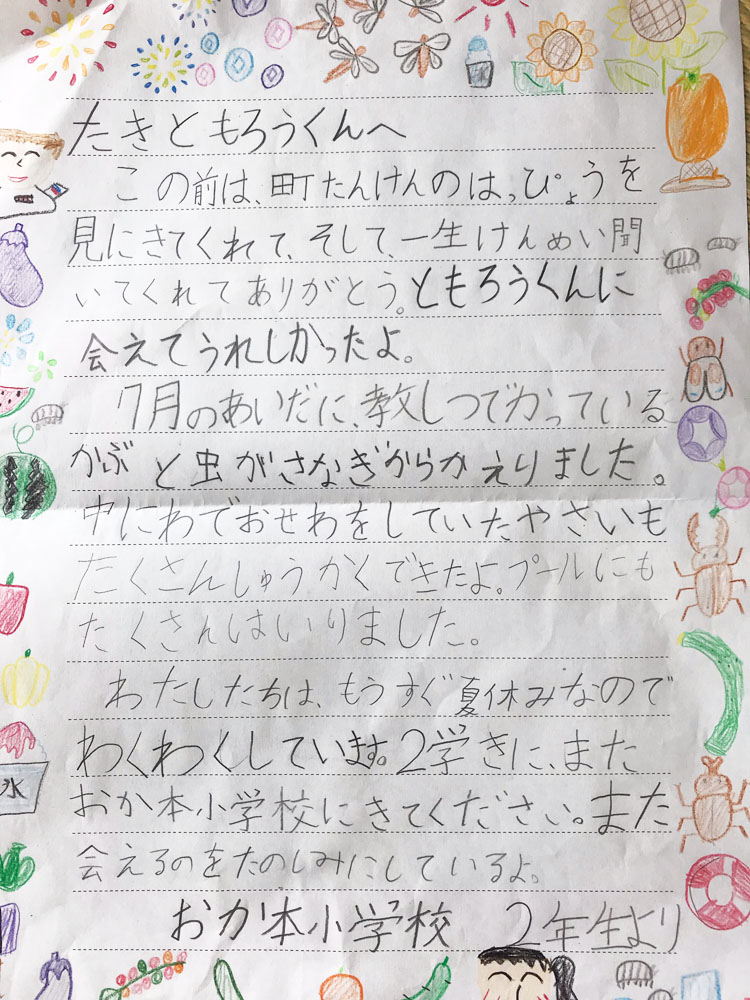 たきともろうくんへ
この前は、町たんけんのはっぴょうを
見にきてくれて、そして、一生けんめい聞
いてくれてありがとう。ともろうくんに
会えてうれしかったよ。
7月のあいだに、教しつでかっている
かぶと虫がさなぎからかえりました。
中にわでおせわをしていたやさいも
たくさんしゅうかくできたよ。プールにも
たくさんはいりました。
わたしたちは、もうすぐ夏休みなので
わくわくしています。2学きに、また
おか本小学校にきてください。また
会えるのをたのしみにしているよ。
おか本小学校 2年生より
氷